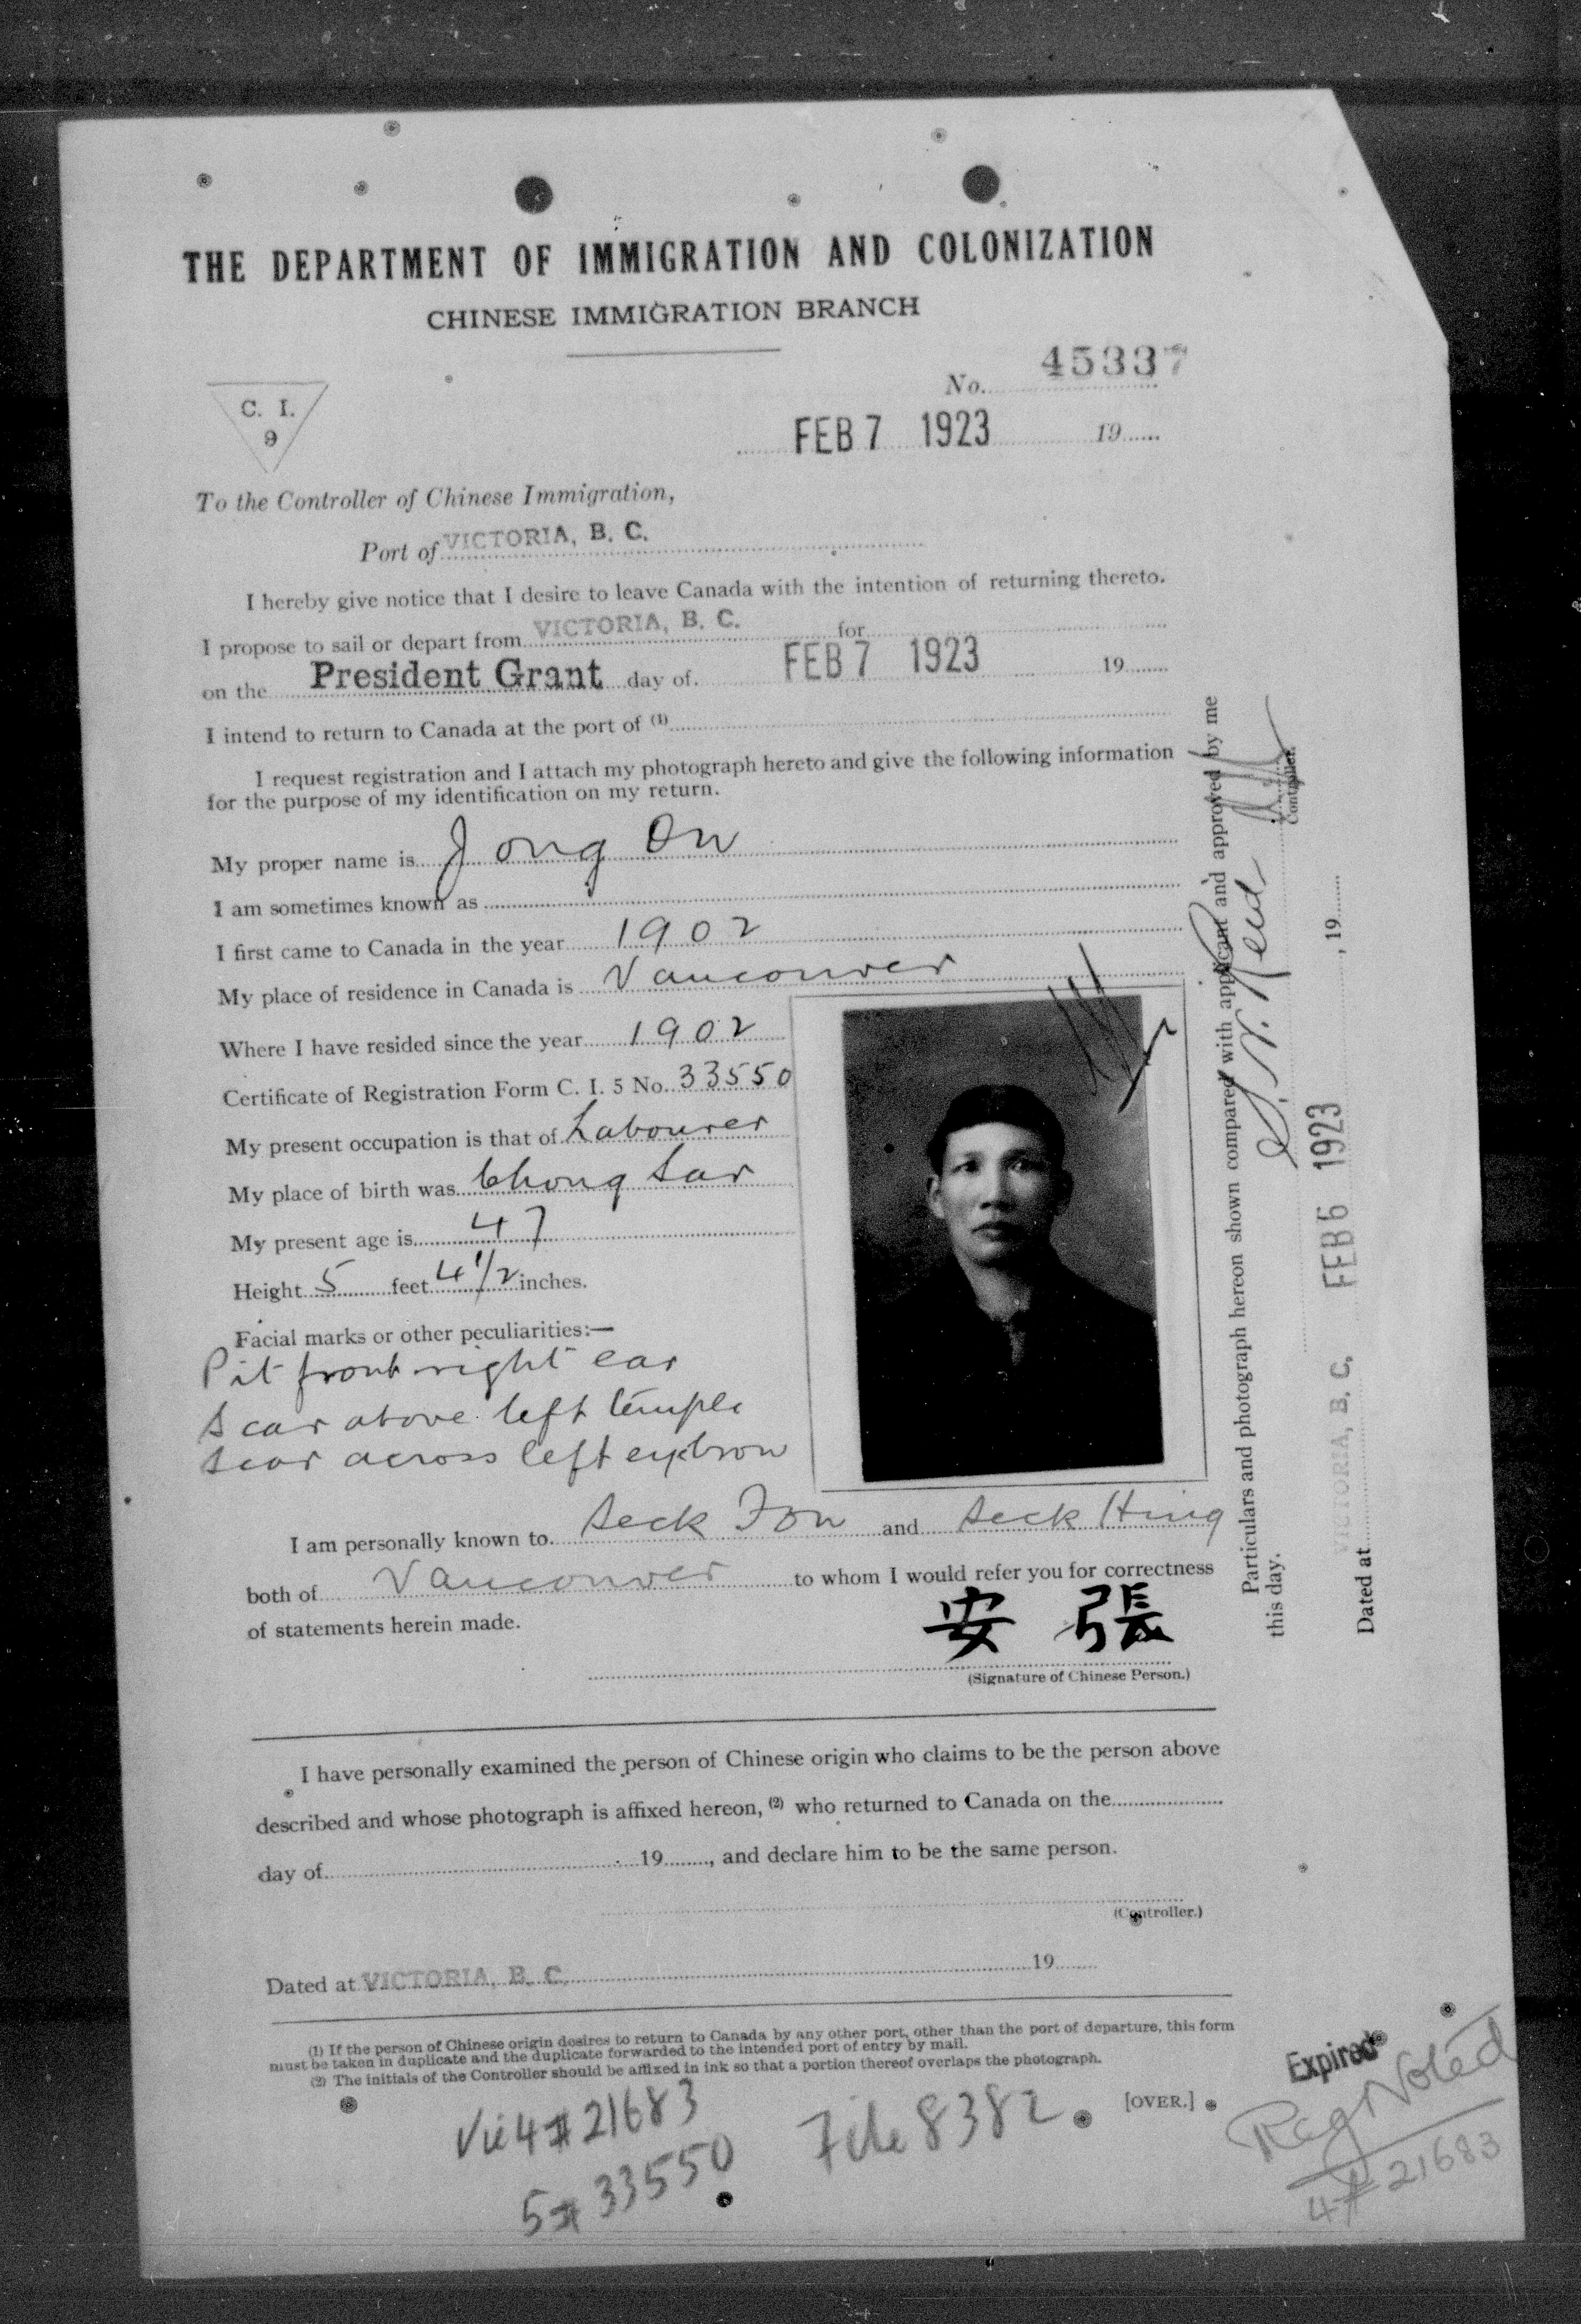 THE DEPARTMENT OF IMMIGRATION AND COLONIZATION
CHINESE IMMIGRATION BRANCH
No. 45337
C. I.
9
FEB 7 1923 19......
To the Controller of Chinese Immigration,
Port of VICTORIA, B. C.
I hereby give notice that I desire to leave Canada with the intention of returning thereto.
I propose to sail or depart from VICTORIA, B. C. for
on the President Grant day of FEB 7 1923 19......
I intend to return to Canada at the port of (1)
I request registration and I attach my photograph hereto and give the following information
for the purpose of my identification on my return.
My proper name is Jong On
I am sometimes known as
I first came to Canada in the year 1902
My place of residence in Canada is Vancouver
Where I have resided since the year 1902
Certificate of Registration Form C. I. 5 No. 33550
My present occupation is that of Labourer
My place of birth was Chong Sar
My present age is 47
Height 5 feet 4 1/2 inches.
Facial marks or other peculiarities:—
Pit front right ear
Scar above left temple
Scar across left eyebrow
I am personally known to Seck Fon and Seck Hing
both of Vancouver to whom I would refer you for correctness
of statements herein made.
安 張
(Signature of Chinese Person.)
I have personally examined the person of Chinese origin who claims to be the person above
described and whose photograph is affixed hereon, (2) who returned to Canada on the
day of 19......, and declare him to be the same person.
(Controller.)
Dated at VICTORIA, B. C. 19......
(1) If the person of Chinese origin desires to return to Canada by any other port, other than the port of departure, this form
must be taken in duplicate and the duplicate forwarded to the intended port of entry by mail.
(2) The initials of the Controller should be affixed in ink so that a portion thereof overlaps the photograph.
[OVER.]
Vic 4# 21683
5# 33550
File 8382
Expired
Reg Noted
4# 21683
Particulars and photograph hereon shown compared with applicant and approved by me
this day.
Controller.
Dated at VICTORIA, B. C. FEB 6 1923, 19......